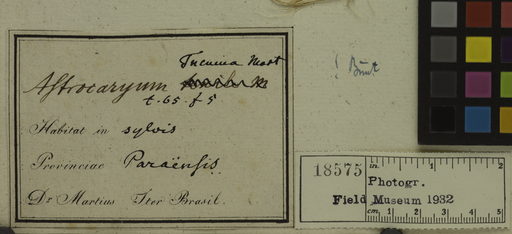 Tucuma Mart
Astrocaryum
t. 65. f 5
Habitat in sylvis
Provinciae Paraënsis.
Dr Martius Iter Brasil.
18575
in. 1 2
Photogr.
Field Museum 1932
cm. 1 2 3 4 5